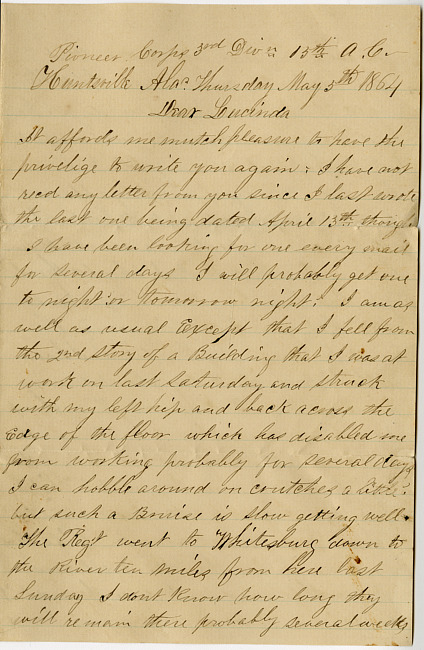 Pioneer Corps 3rd Divn 15th A.C.
Huntsville Ala. Thursday May 5th 1864
Dear Lucinda
It affords me mutch pleasure to have the
privilige to write you again. I have not
recd any letter from you since I last wrote
the last one being dated April 13th though
I have been looking for one every mail
for several days I will probably get one
to night or tomorrow night. I am as
well as usual Except that I fell from
the 2nd story of a Building that I was at
work on last Saturday and struck
with my left hip and back across the
Edge of the floor which has disabled me
from working probably for several days
I can hobble around on crutches a little.
but such a Bruise is slow getting well.
The Regt went to Whitesburg down to
the River ten miles from here last
Sunday I dont Know how long they
will remain there probably several weeks